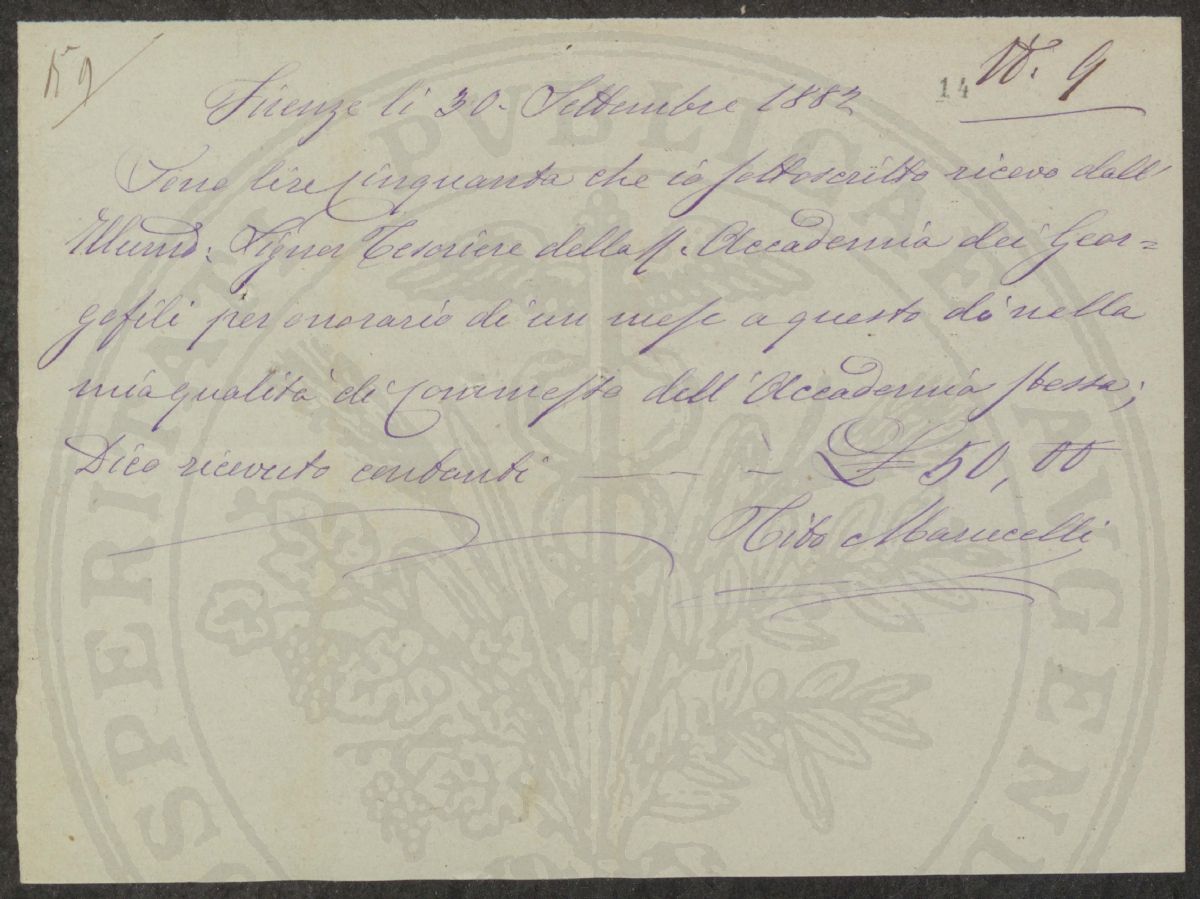 N 9
14 N. 9
Firenze li 30. Settembre 1882
Sono lire Cinquanta che io sottoscritto ricevo dall'
Illumo: Signor Tesoriere della R. Accademia dei Geor=
gofili per onorario di un mese a questo dì nella
mia qualità di Commesso dell'Accademia stessa;
Dico ricevuto contanti — — - £ 50,00
Tito Marucelli
PROSPERITATI PVBLICAE AVGENDAE